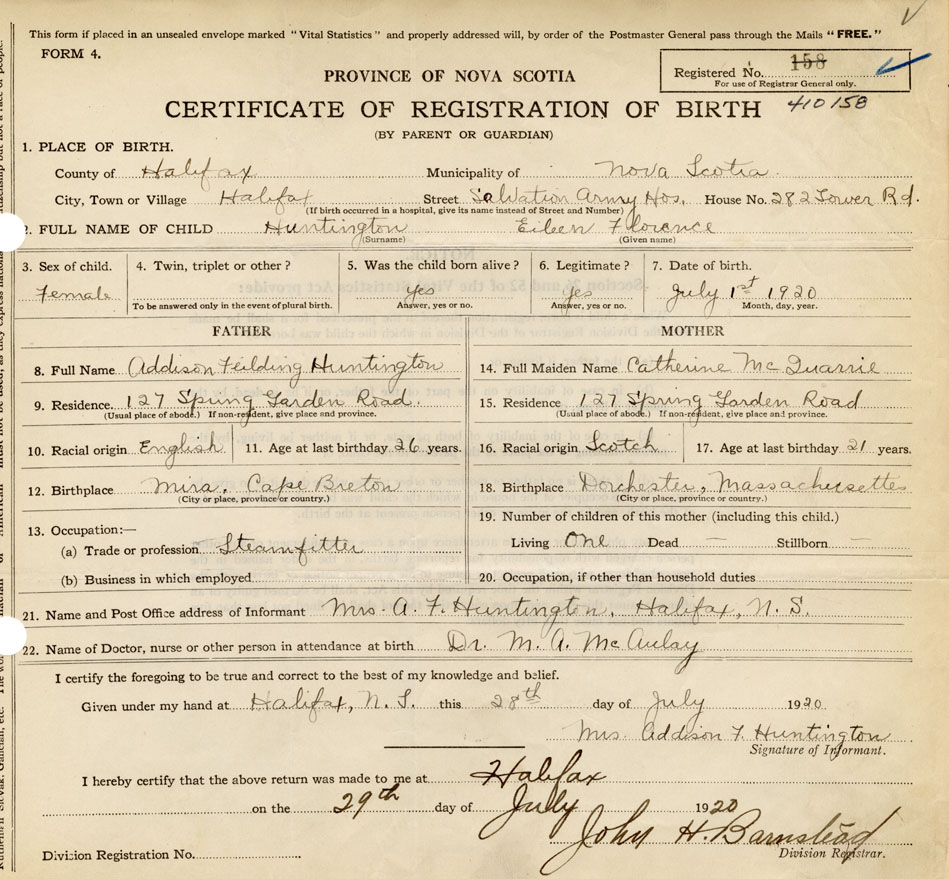 This form if placed in an unsealed envelope marked "Vital Statistics" and properly addressed will, by order of the Postmaster General pass through the Mails "FREE."
FORM 4.
Registered No. 158
For use of Registrar General only.
PROVINCE OF NOVA SCOTIA
CERTIFICATE OF REGISTRATION OF BIRTH 410158
(BY PARENT OR GUARDIAN)
1. PLACE OF BIRTH.
County of Halifax Municipality of Nova Scotia
City, Town or Village Halifax Street Salvation Army Hos. House No. 282 Tower Rd.
(If birth occurred in a hospital, give its name instead of Street and Number)
2. FULL NAME OF CHILD Huntington Eileen Florence
(Surname) (Given name)
3. Sex of child. 4. Twin, triplet or other? 5. Was the child born alive? 6. Legitimate? 7. Date of birth.
Female yes yes July 1st 1920
To be answered only in the event of plural birth. Answer, yes or no. Answer, yes or no. Month, day, year.
FATHER MOTHER
8. Full Name Addison Feilding Huntington 14. Full Maiden Name Catherine Mc Quarrie
9. Residence. 127 Spring Garden Road 15. Residence 127 Spring Garden Road
(Usual place of abode.) If non-resident, give place and province. (Usual place of abode.) If non-resident, give place and province.
10. Racial origin English 11. Age at last birthday 26 years. 16. Racial origin Scotch 17. Age at last birthday 21 years.
12. Birthplace Mira, Cape Breton 18. Birthplace Dorchester, Massachusettes
(City or place, province or country.) (City or place, province or country.)
13. Occupation:— 19. Number of children of this mother (including this child.)
(a) Trade or profession Steamfitter Living One Dead — Stillborn —
(b) Business in which employed 20. Occupation, if other than household duties
21. Name and Post Office address of Informant Mrs. A. F. Huntington, Halifax, N. S.
22. Name of Doctor, nurse or other person in attendance at birth Dr. M. A. McAulay
I certify the foregoing to be true and correct to the best of my knowledge and belief.
Given under my hand at Halifax, N. S. this 28th day of July 1920
Mrs. Addison F. Huntington
Signature of Informant.
I hereby certify that the above return was made to me at Halifax
on the 29th day of July 1920
John H. Barnstead
Division Registration No. Division Registrar.